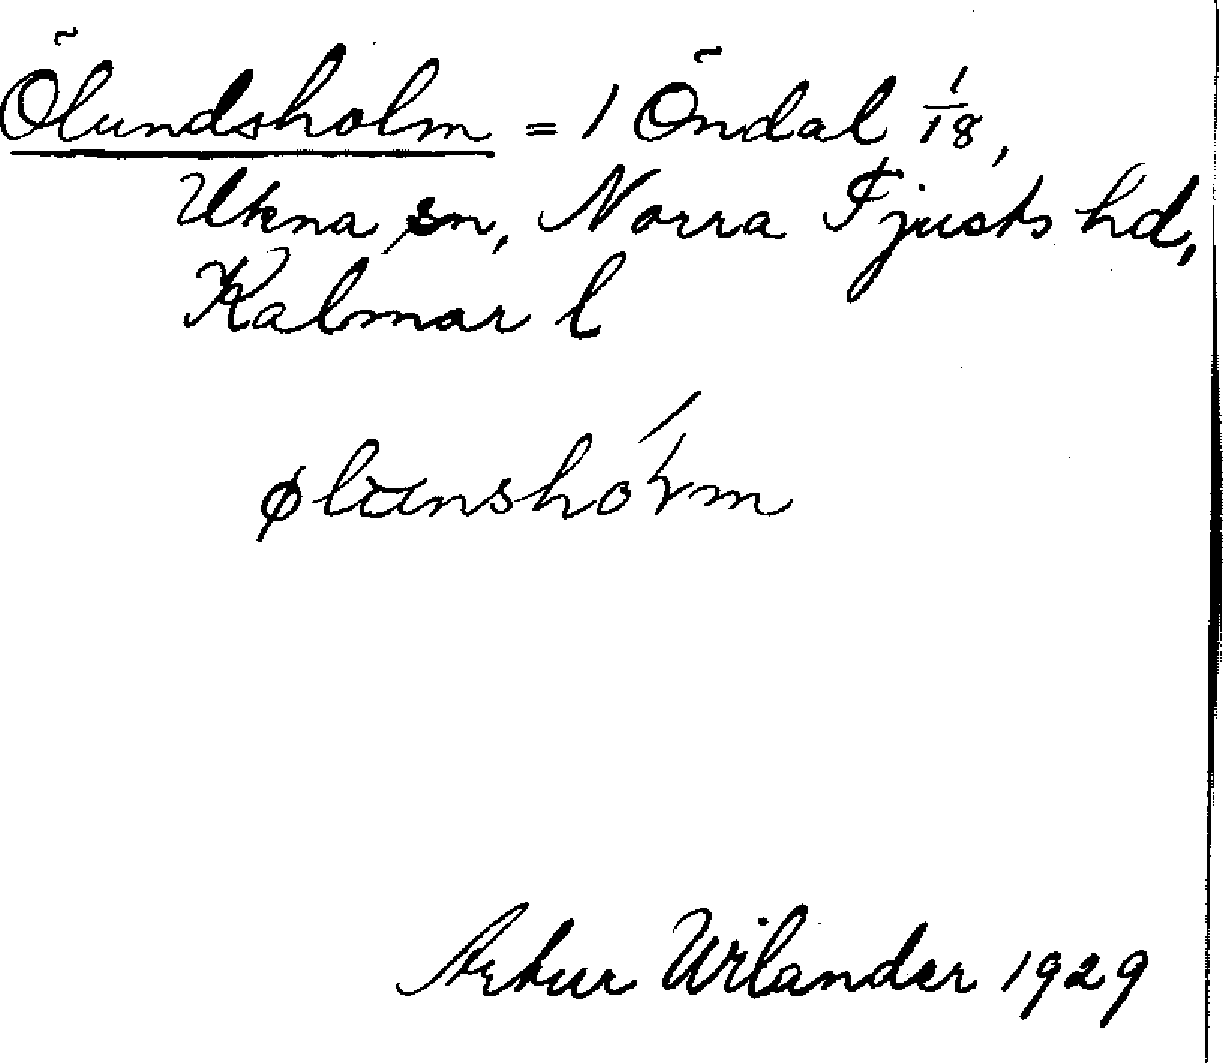 Ölundsholm = 1 Öndal 1/18,
Ukna sn, Norra Tjusts hd,
Kalmar l
Artur Wilander 1929